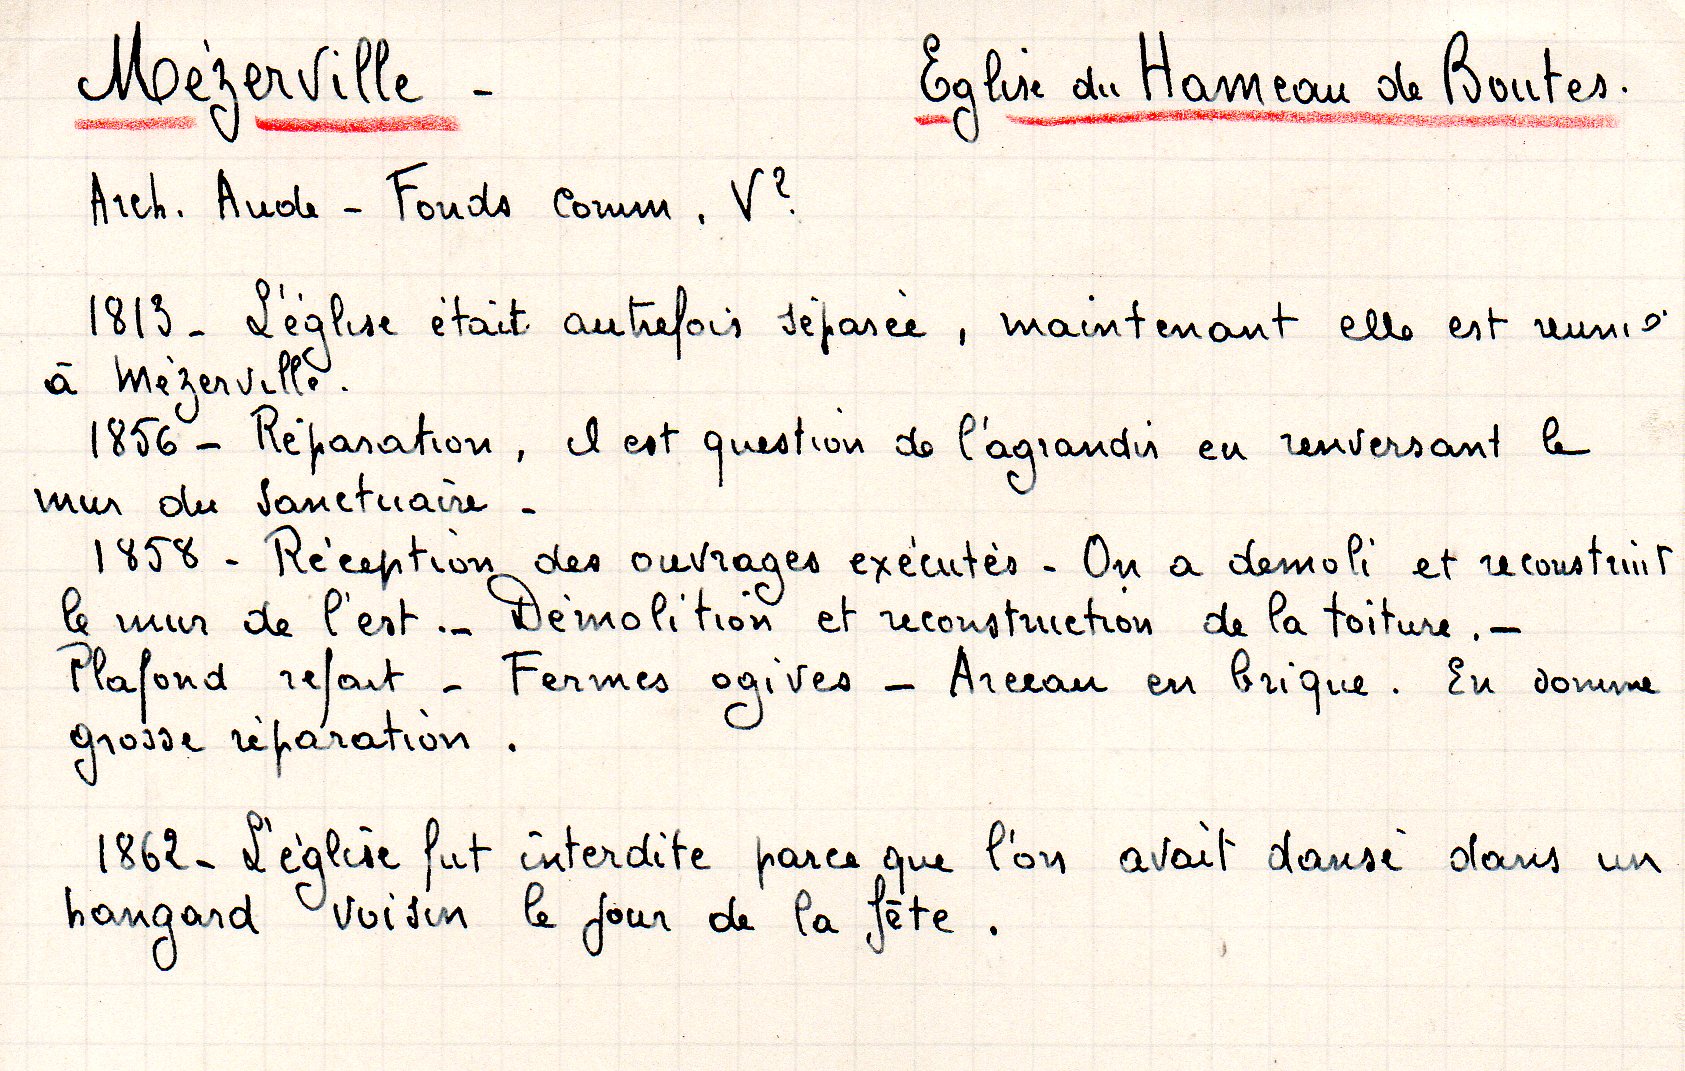 Mézerville - Eglise du Hameau de Boutes.
Arch. Aude - Fonds Comm. V?
1813 - L'église était autrefois séparée, maintenant elle est reunie
à Mézerville.
1856 - Réparation, il est question de l'agrandir en renversant le
mur du sanctuaire -
1858 - Réception des ouvrages exécutés - On a demoli et reconstruit
le mur de l'est. - Démolition et reconstruction de la toiture. -
Plafond refait - Fermes ogives - Arceau en brique. En somme
grosse réparation.
1862 - L'église fut interdite parce que l'on avait dansé dans un
hangard voisin le jour de la fête.